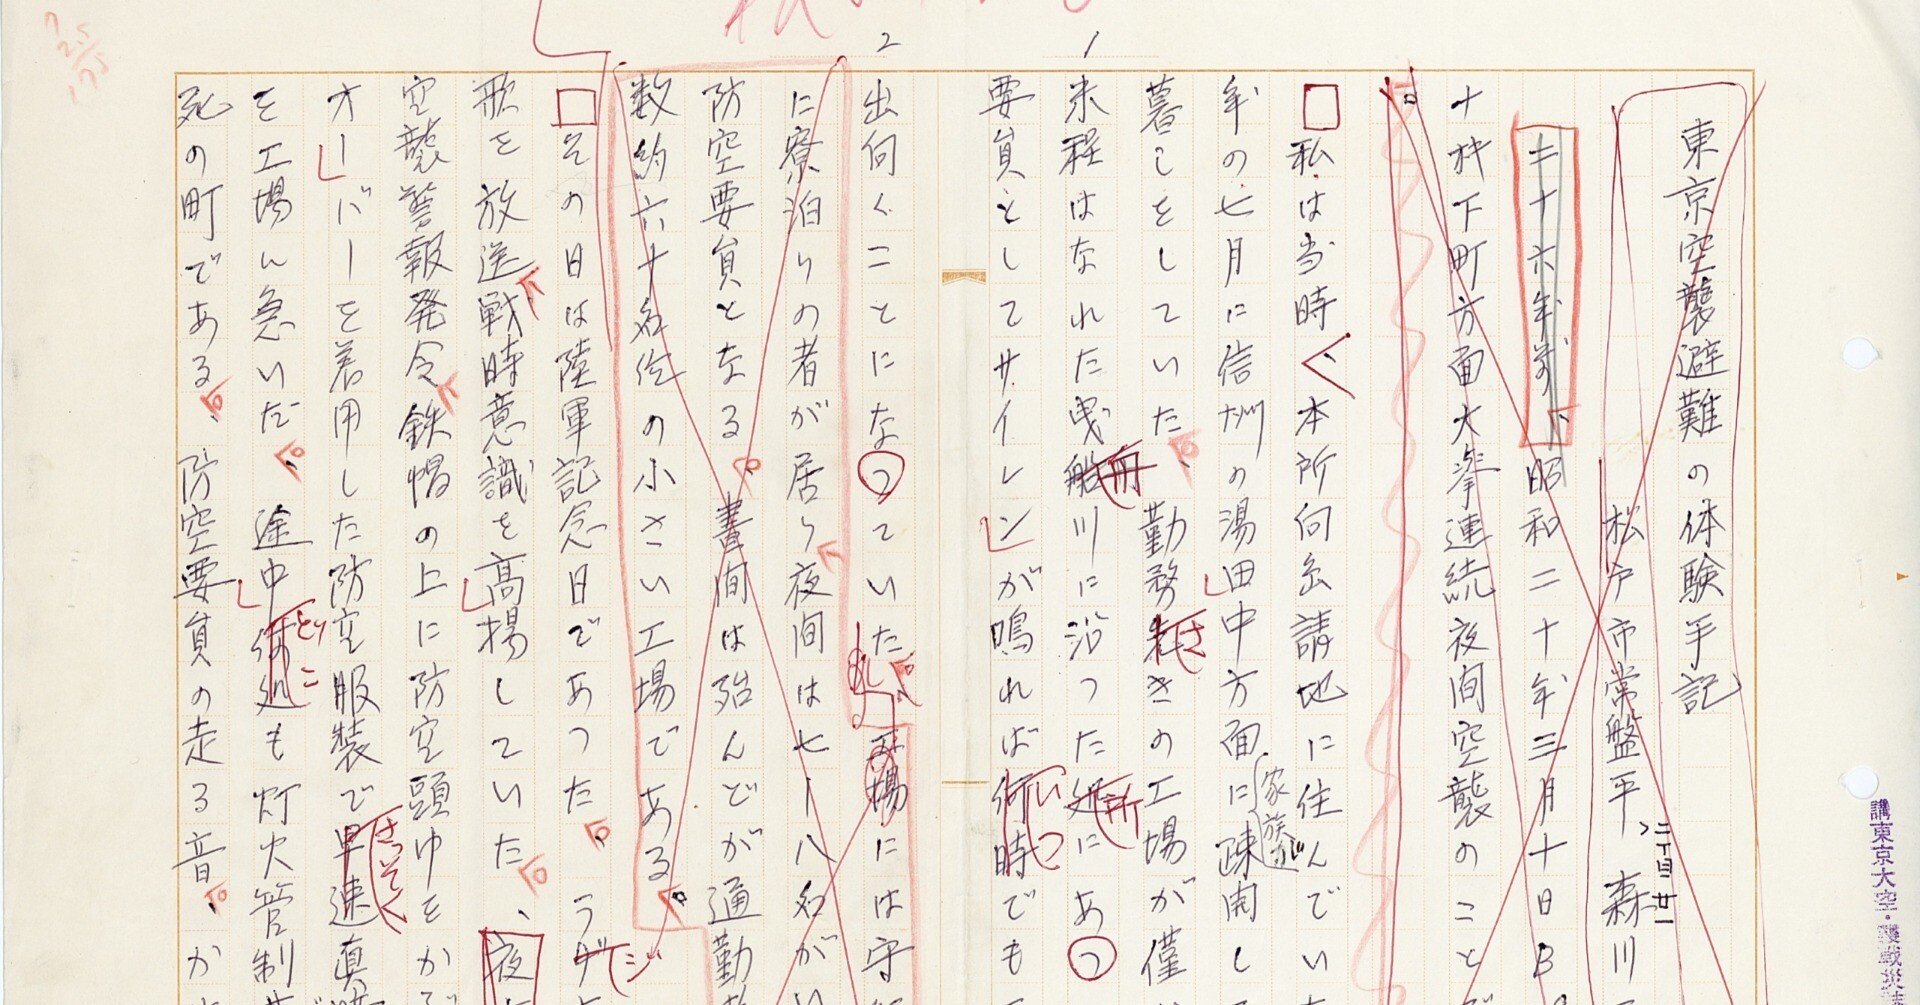 東京空襲避難の体験手記
松戸市常盤平 森川
三十六年前、昭和二十年三月十日B
十粁下町方面大挙連続夜間空襲のこと
私は当時、本所向島請地に住んでい
年の七月に信州の湯田中方面に家族が疎開し
暮しをしていた、勤務先きの工場が僅
米程はなれた曳船川に沿った処にあっ
要員としてサイレンが鳴れば何時でも
出向くことになっていた、工場には守
に寮泊りの者が居り夜間は七ー八名が
防空要員となる、昼間は殆んどが通勤
数約六十名位の小さい工場である。
その日は陸軍記念日であった、ラヂ
歌を放送戦時意識を高揚していた、夜
空襲警報発令鉄帽の上に防空頭巾をか
オーバーを着用した防空服装で早速真
を工場へ急いだ、途中何処も灯火管制
死の町である、防空要員の走る音、か
1
2
さ
所
いつ
ジ
さっそく
どこ